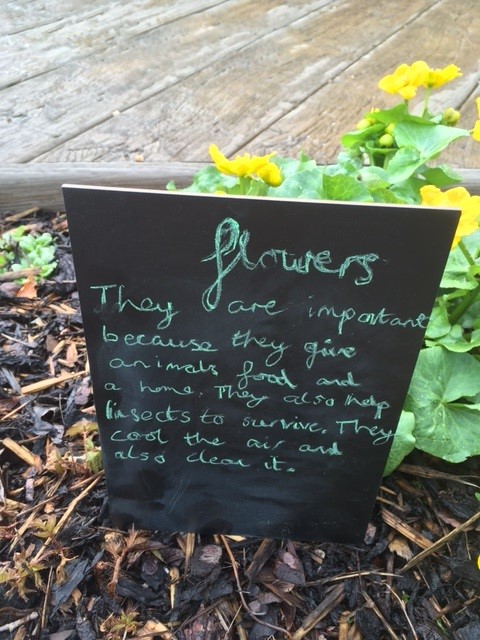 flowers
They are important
because they give
animals food and
a home. They also help
insects to survive. They
cool the air and
also clean it.